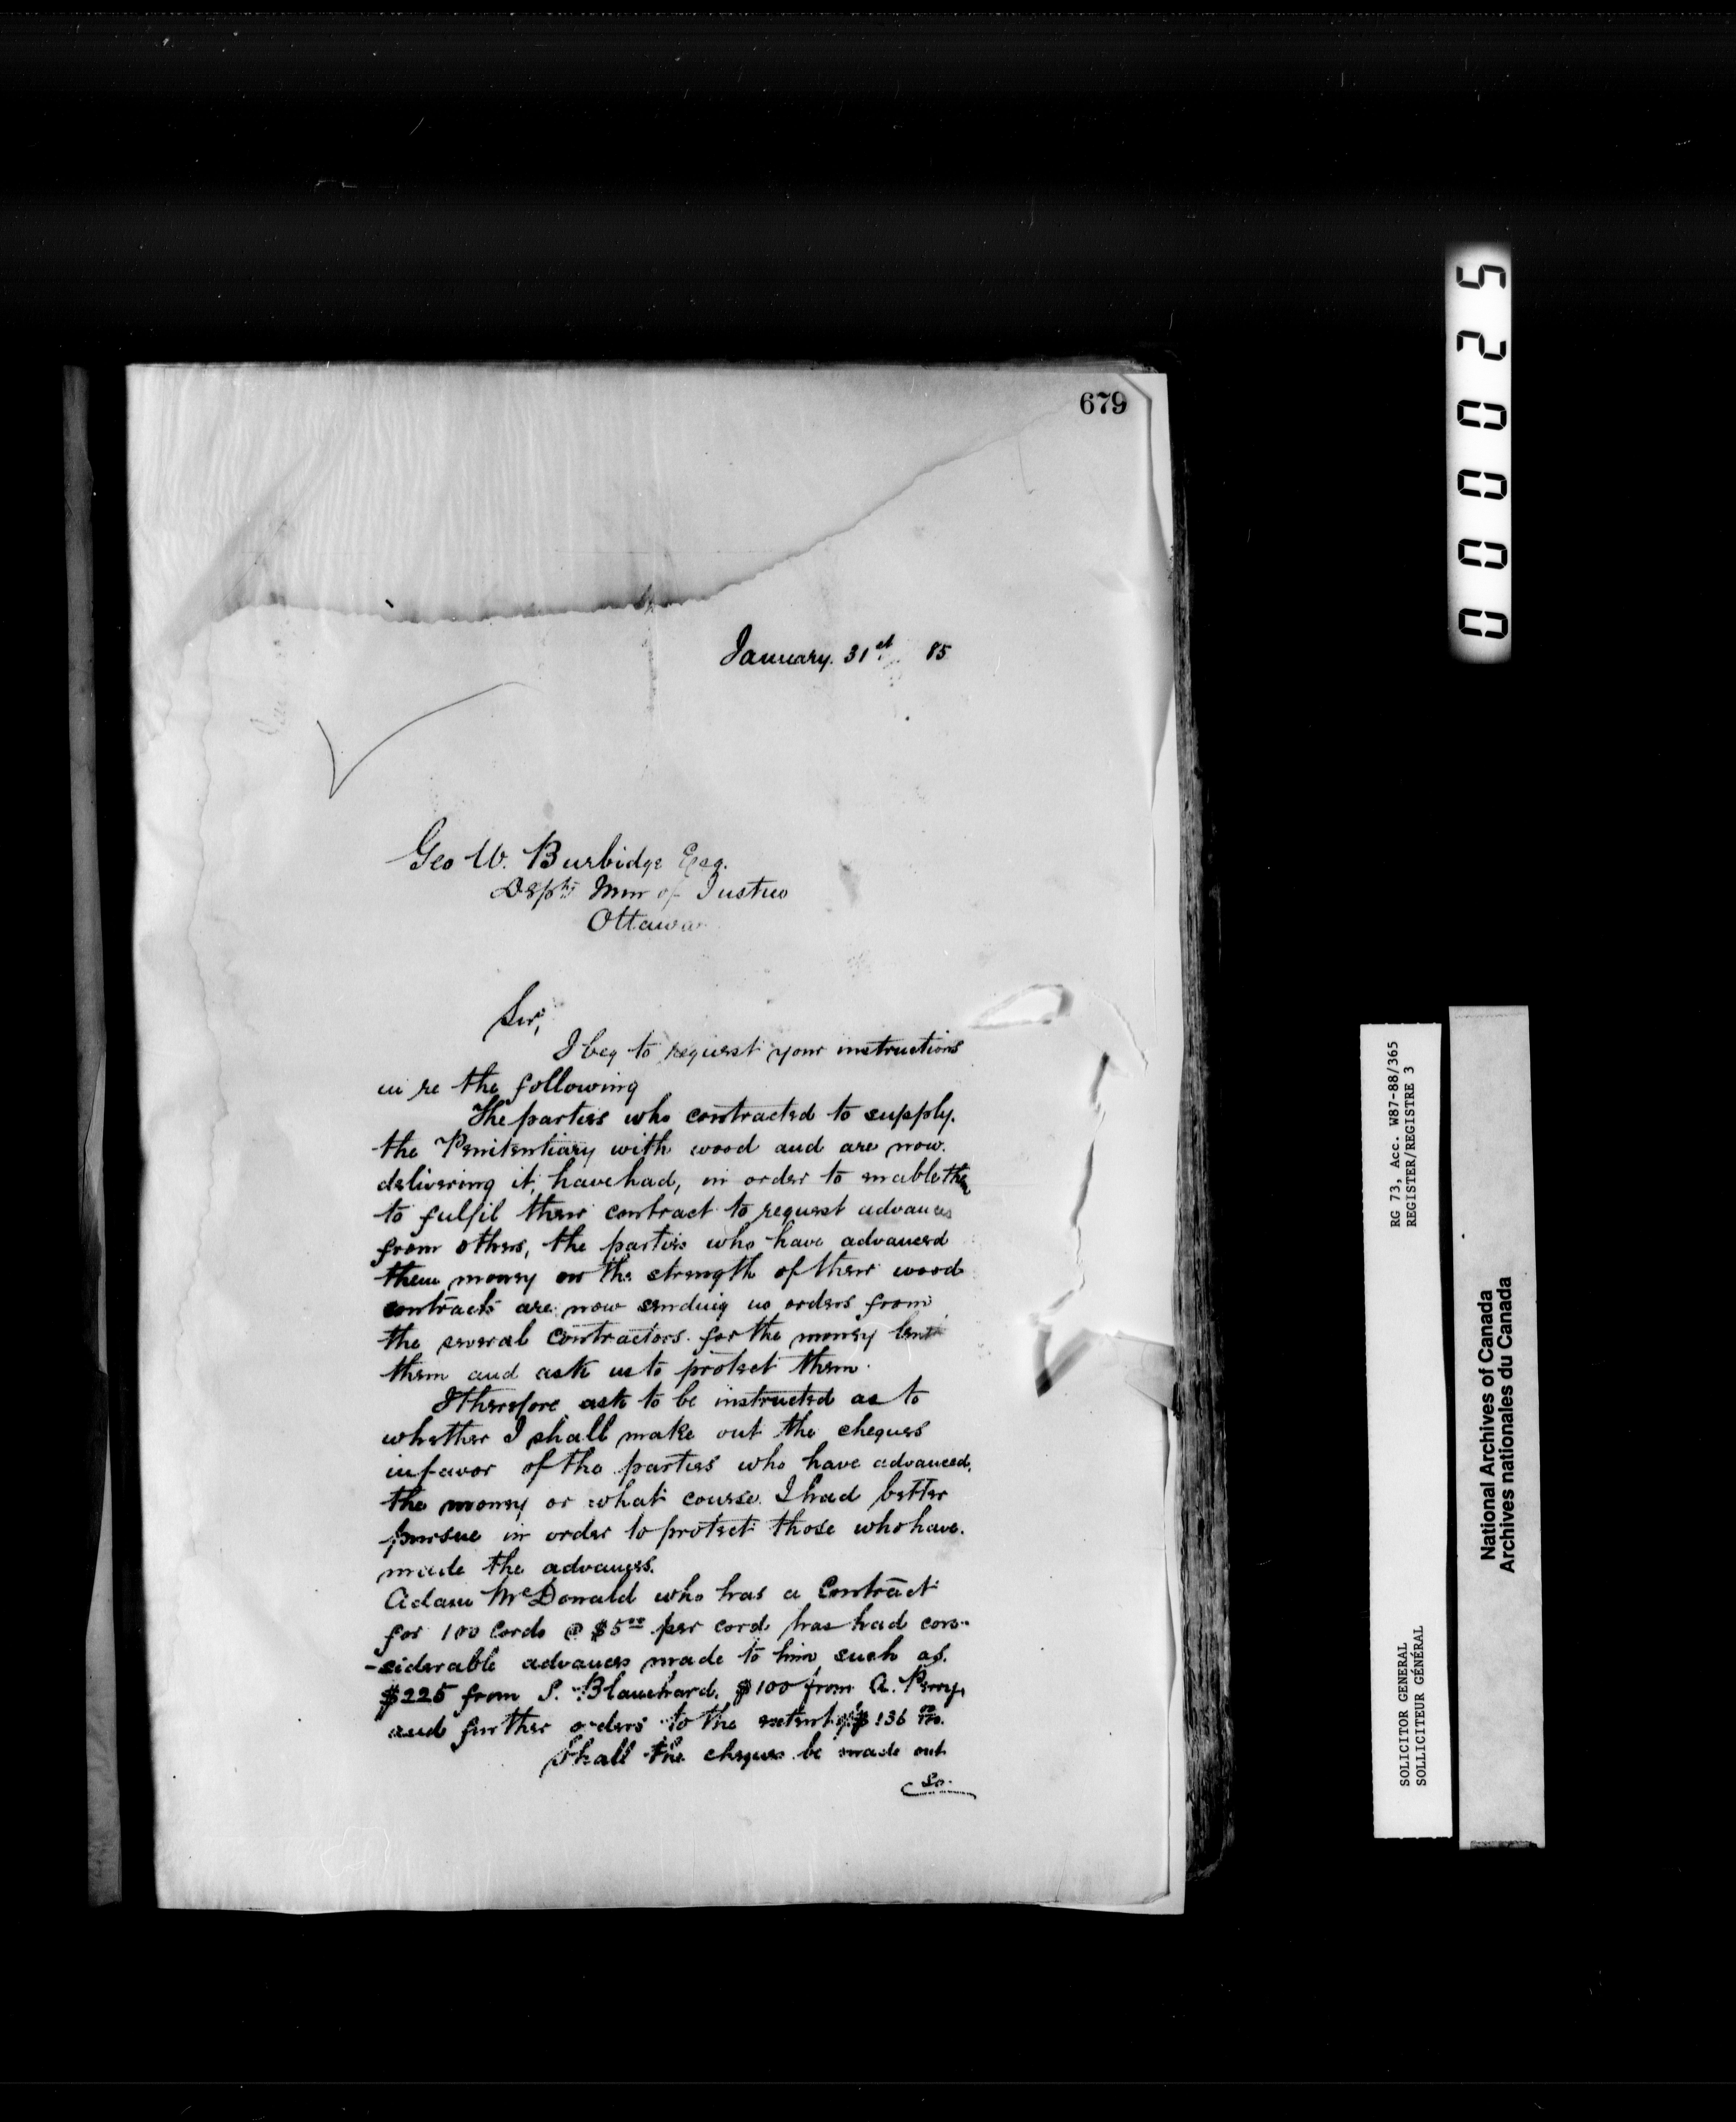 679
January. 31st 85
Geo W. Burbidge Esq.
Depty Min of Justice
Ottawa
Sir,
I beg to request your instructions
in re the following
The parties who contracted to supply.
the Penitentiary with wood and are now.
delivering it, have had, in order to enable them
to fulfil their contract to request advances
from others, the parties who have advanced
them money on the strength of their wood
contracts are now sending us orders from
the several contractors for the money lent
them and ask us to protect them.
I therefore ask to be instructed as to
whether I shall make out the cheques
in favor of the parties who have advanced,
the money or what course I had better
pursue in order to protect those who have.
made the advances.
Adam McDonald who has a Contract
for 100 Cords @ $5.00 per cord has had con-
-siderable advances made to him such as.
$225 from S. Blanchard. $100 from A. Perry,
and further orders to the extent of $136
Shall the cheques be made out
so.
000025
RG 73, Acc. W87-88/365
REGISTER/REGISTRE 3
SOLICITOR GENERAL
SOLLICITEUR GÉNÉRAL
National Archives of Canada
Archives nationales du Canada